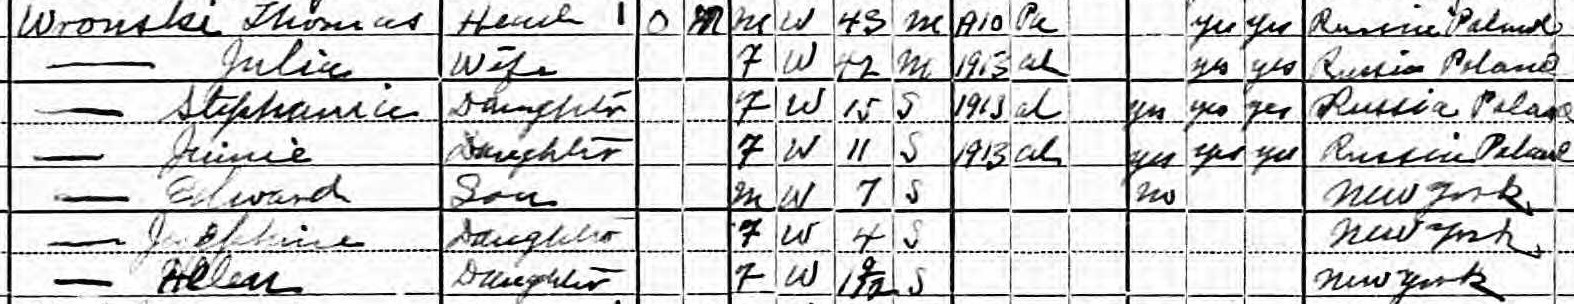 Wronski Thomas Head 1 O M M W 43 M 1910 Pa yes yes Russia Poland
— Julia Wife F W 42 M 1913 al yes yes Russia Poland
— Stephanie Daughter F W 15 S 1913 al yes yes yes Russia Poland
— Jennie Daughter F W 11 S 1913 al yes yes yes Russia Poland
— Edward Son M W 7 S no New York
— Josephine Daughter F W 4 S New York
— Helen Daughter F W S New York